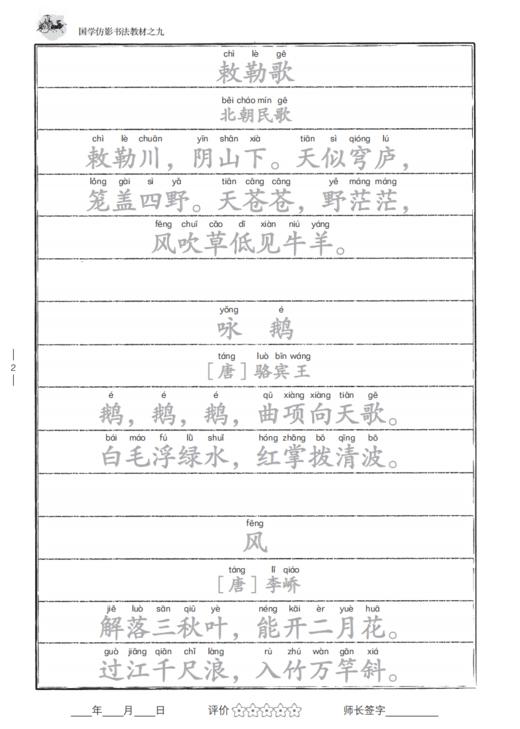 国学仿影书法教材之九
chì lè gē
敕勒歌
běi cháo mín gē
北朝民歌
chì lè chuān yīn shān xià tiān sì qióng lú
敕勒川，阴山下。天似穹庐，
lǒng gài sì yě tiān cāng cāng yě máng máng
笼盖四野。天苍苍，野茫茫，
fēng chuī cǎo dī xiàn niú yáng
风吹草低见牛羊。
yǒng é
咏 鹅
táng luò bīn wáng
［唐］骆宾王
é é é qū xiàng xiàng tiān gē
鹅，鹅，鹅，曲项向天歌。
bái máo fú lǜ shuǐ hóng zhǎng bō qīng bō
白毛浮绿水，红掌拨清波。
fēng
风
táng lǐ qiáo
［唐］李峤
jiě luò sān qiū yè néng kāi èr yuè huā
解落三秋叶，能开二月花。
guò jiāng qiān chǐ làng rù zhú wàn gān xiá
过江千尺浪，入竹万竿斜。
2
____年____月____日 评价☆☆☆☆☆ 师长签字__________